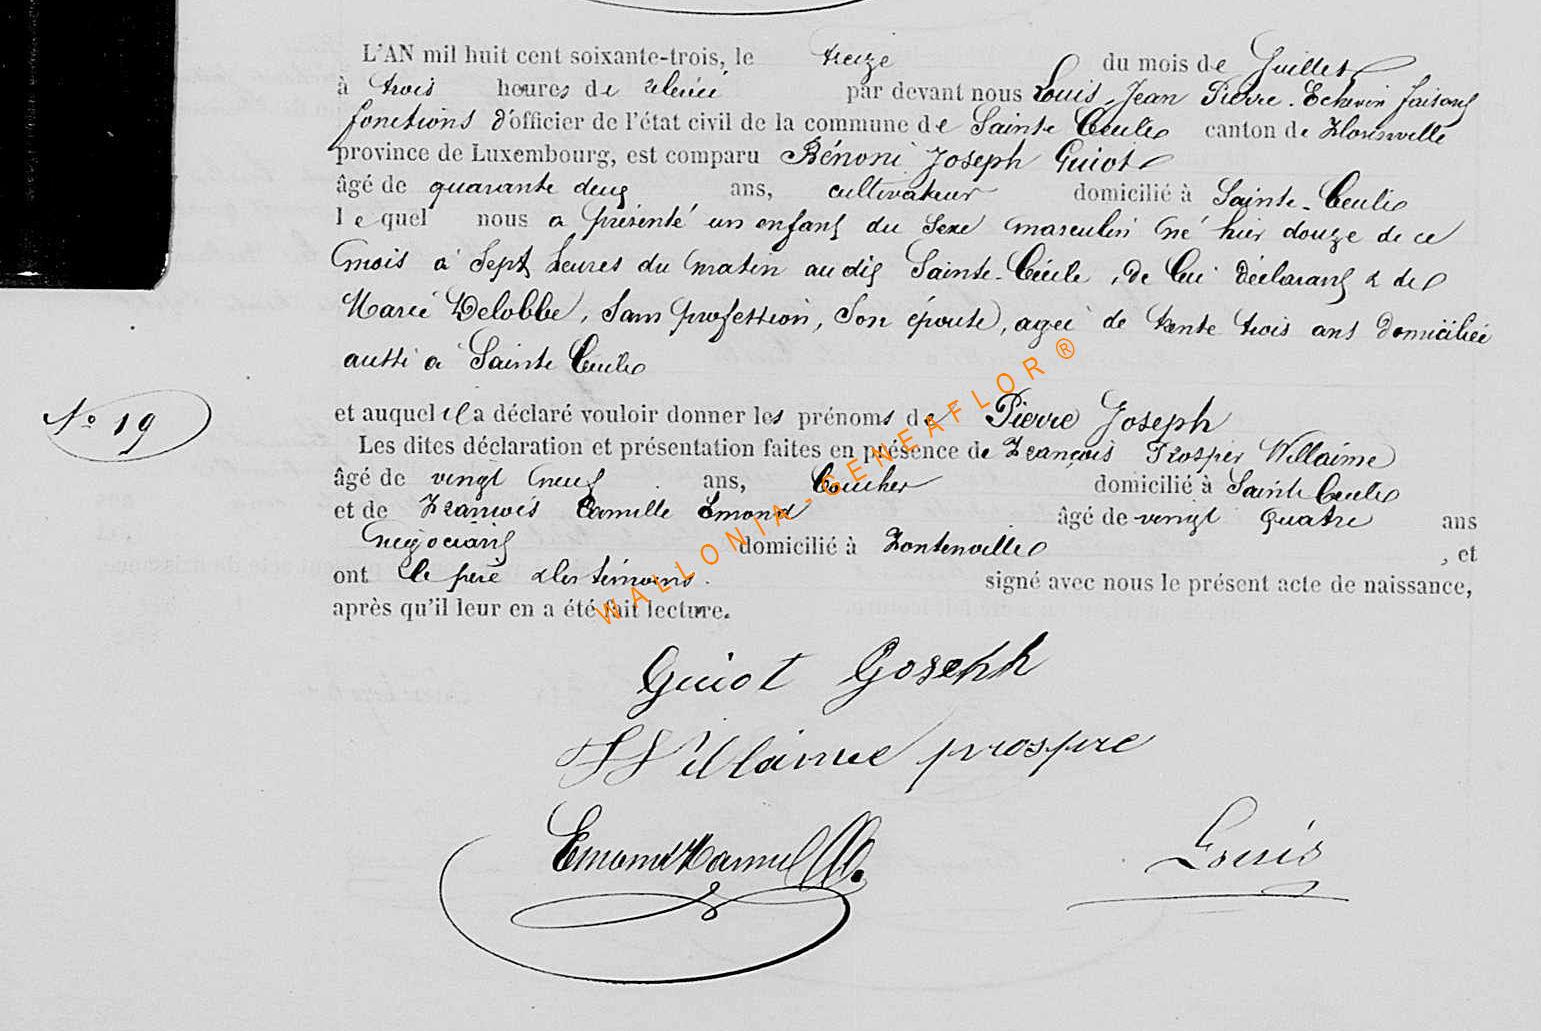 L'AN mil huit cent soixante-trois, le treize du mois de Juillet
à trois heures de relevée par devant nous Louis, Jean Pierre. Echevin faisant
fonctions d'officier de l'état civil de la commune de Sainte Cécile canton de Florenville
province de Luxembourg, est comparu Bénoni Joseph Guiot
âgé de quarante deux ans, cultivateur domicilié à Sainte-Cécile
lequel nous a présenté un enfant du sexe masculin né hier douze de ce
mois à sept heures du matin audit Sainte-Cécile, de lui déclarant & de
Marie Delobbe, sans profession, son épouse, agée de trente trois ans domiciliée
aussi à Sainte Cécile
No 19
et auquel il a déclaré vouloir donner les prénoms de Pierre Joseph
Les dites déclaration et présentation faites en présence de François Prosper Willaime
âgé de vingt neuf ans, Boucher domicilié à Sainte Cécile
et de François Camille Emond âgé de vingt quatre ans
négociant domicilié à Fontenoille, et
ont le père & les témoins. signé avec nous le présent acte de naissance,
après qu'il leur en a été fait lecture.
WALLONIA-GENEAFLOR®
Guiot Joseph
Willaime prospre
Emond
Louis